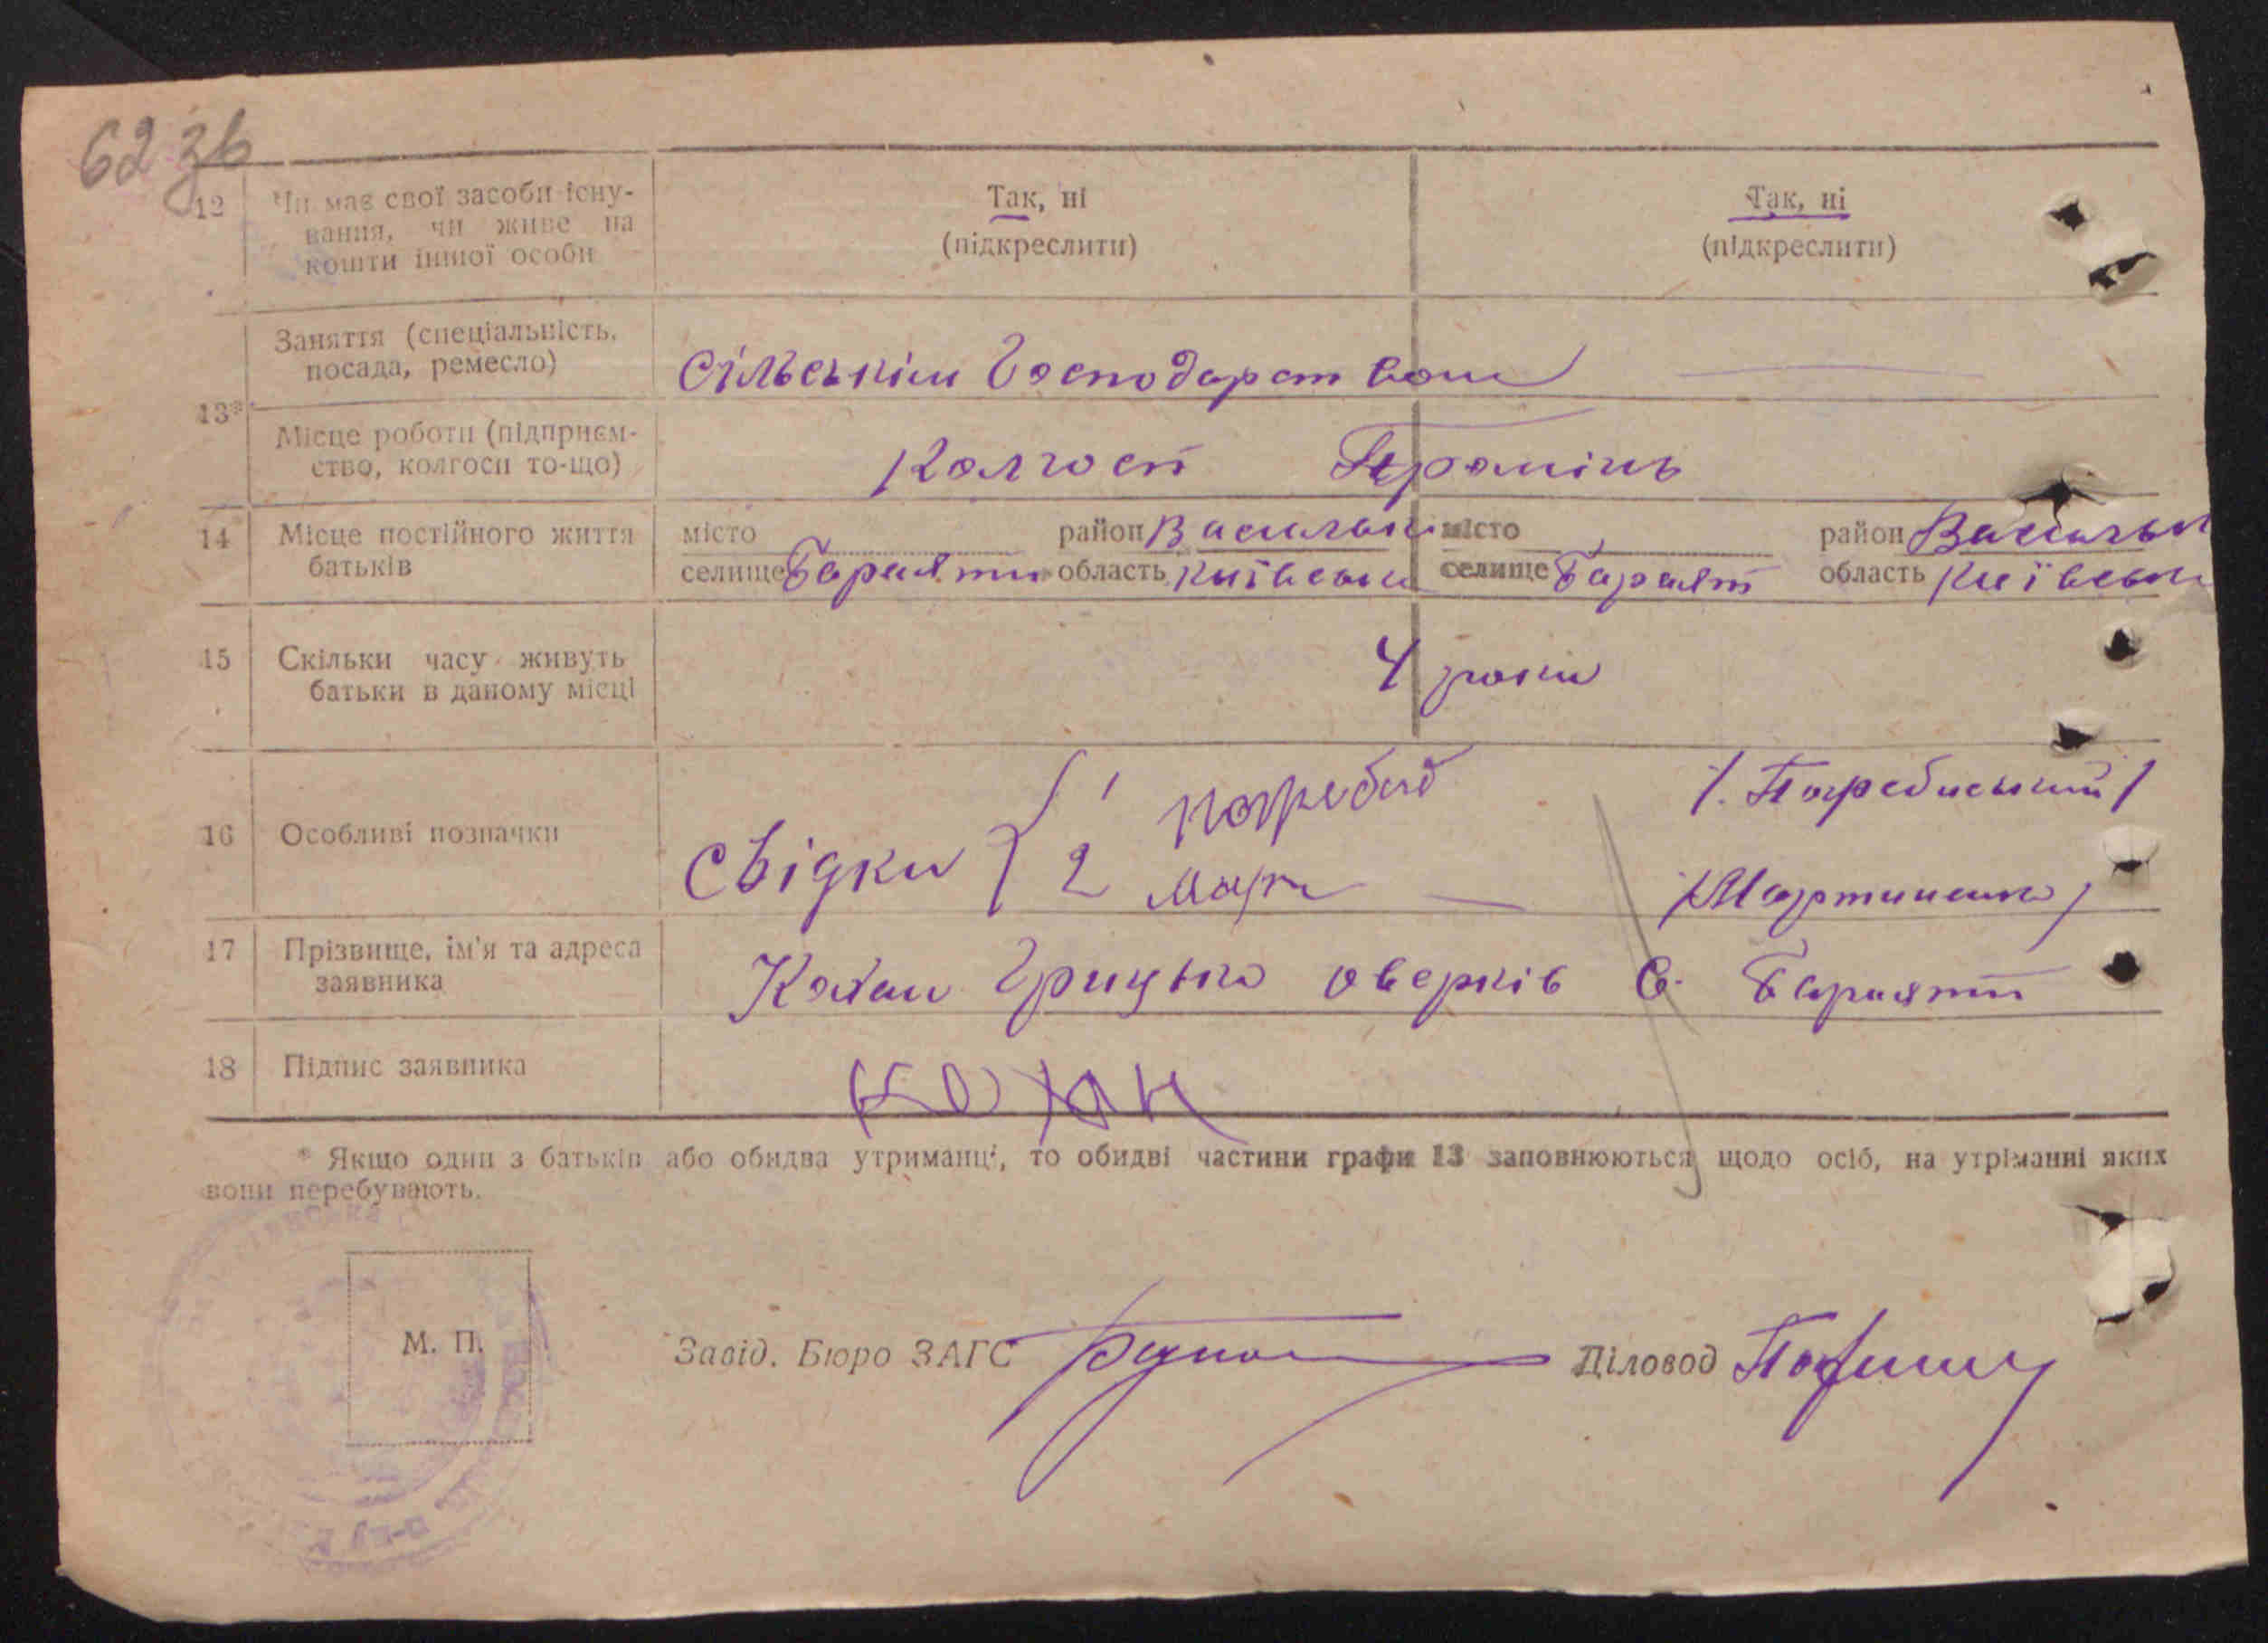 62 зв
12 Чи має свої засоби існу-
вання, чи живе на
кошти іншої особи
Так, ні
(підкреслити)
Так, ні
(підкреслити)
13*
Заняття (спеціальність,
посада, ремесло)
Сільськім Господарством
Місце роботи (підприєм-
ство, колгосп то-що)
Колгосп Промінь
14 Місце постійного життя
батьків
місто район Васильк
селище область Київськ
місто район Васильк
селище область Київськ
15 Скільки часу живуть
батьки в даному місці
4 роки
16 Особливі позначки
Свідки { 1 погребис /. Погребиський /
2 март — /Мартиненко/
17 Прізвище, ім'я та адреса
заявника
Кохан Грицько оверків С.
18 Підпис заявника
КОХАН
* Якщо один з батьків або обидва утриманці, то обидві частини графи 13 заповнюються щодо осіб, на утріманні яких
вони перебувають.
М. П.
Завід. Бюро ЗАГС
Діловод